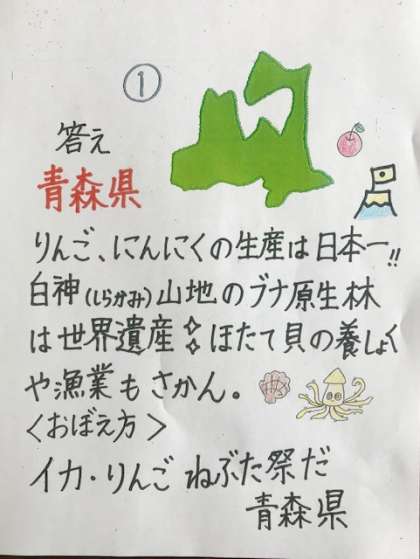 ①
答え
青森県
りんご、にんにくの生産は日本一!!
白神(しらかみ)山地のブナ原生林
は世界遺産✧ほたて貝の養しょく
や漁業もさかん。
〈おぼえ方〉
イカ・りんご ねぶた祭だ
青森県